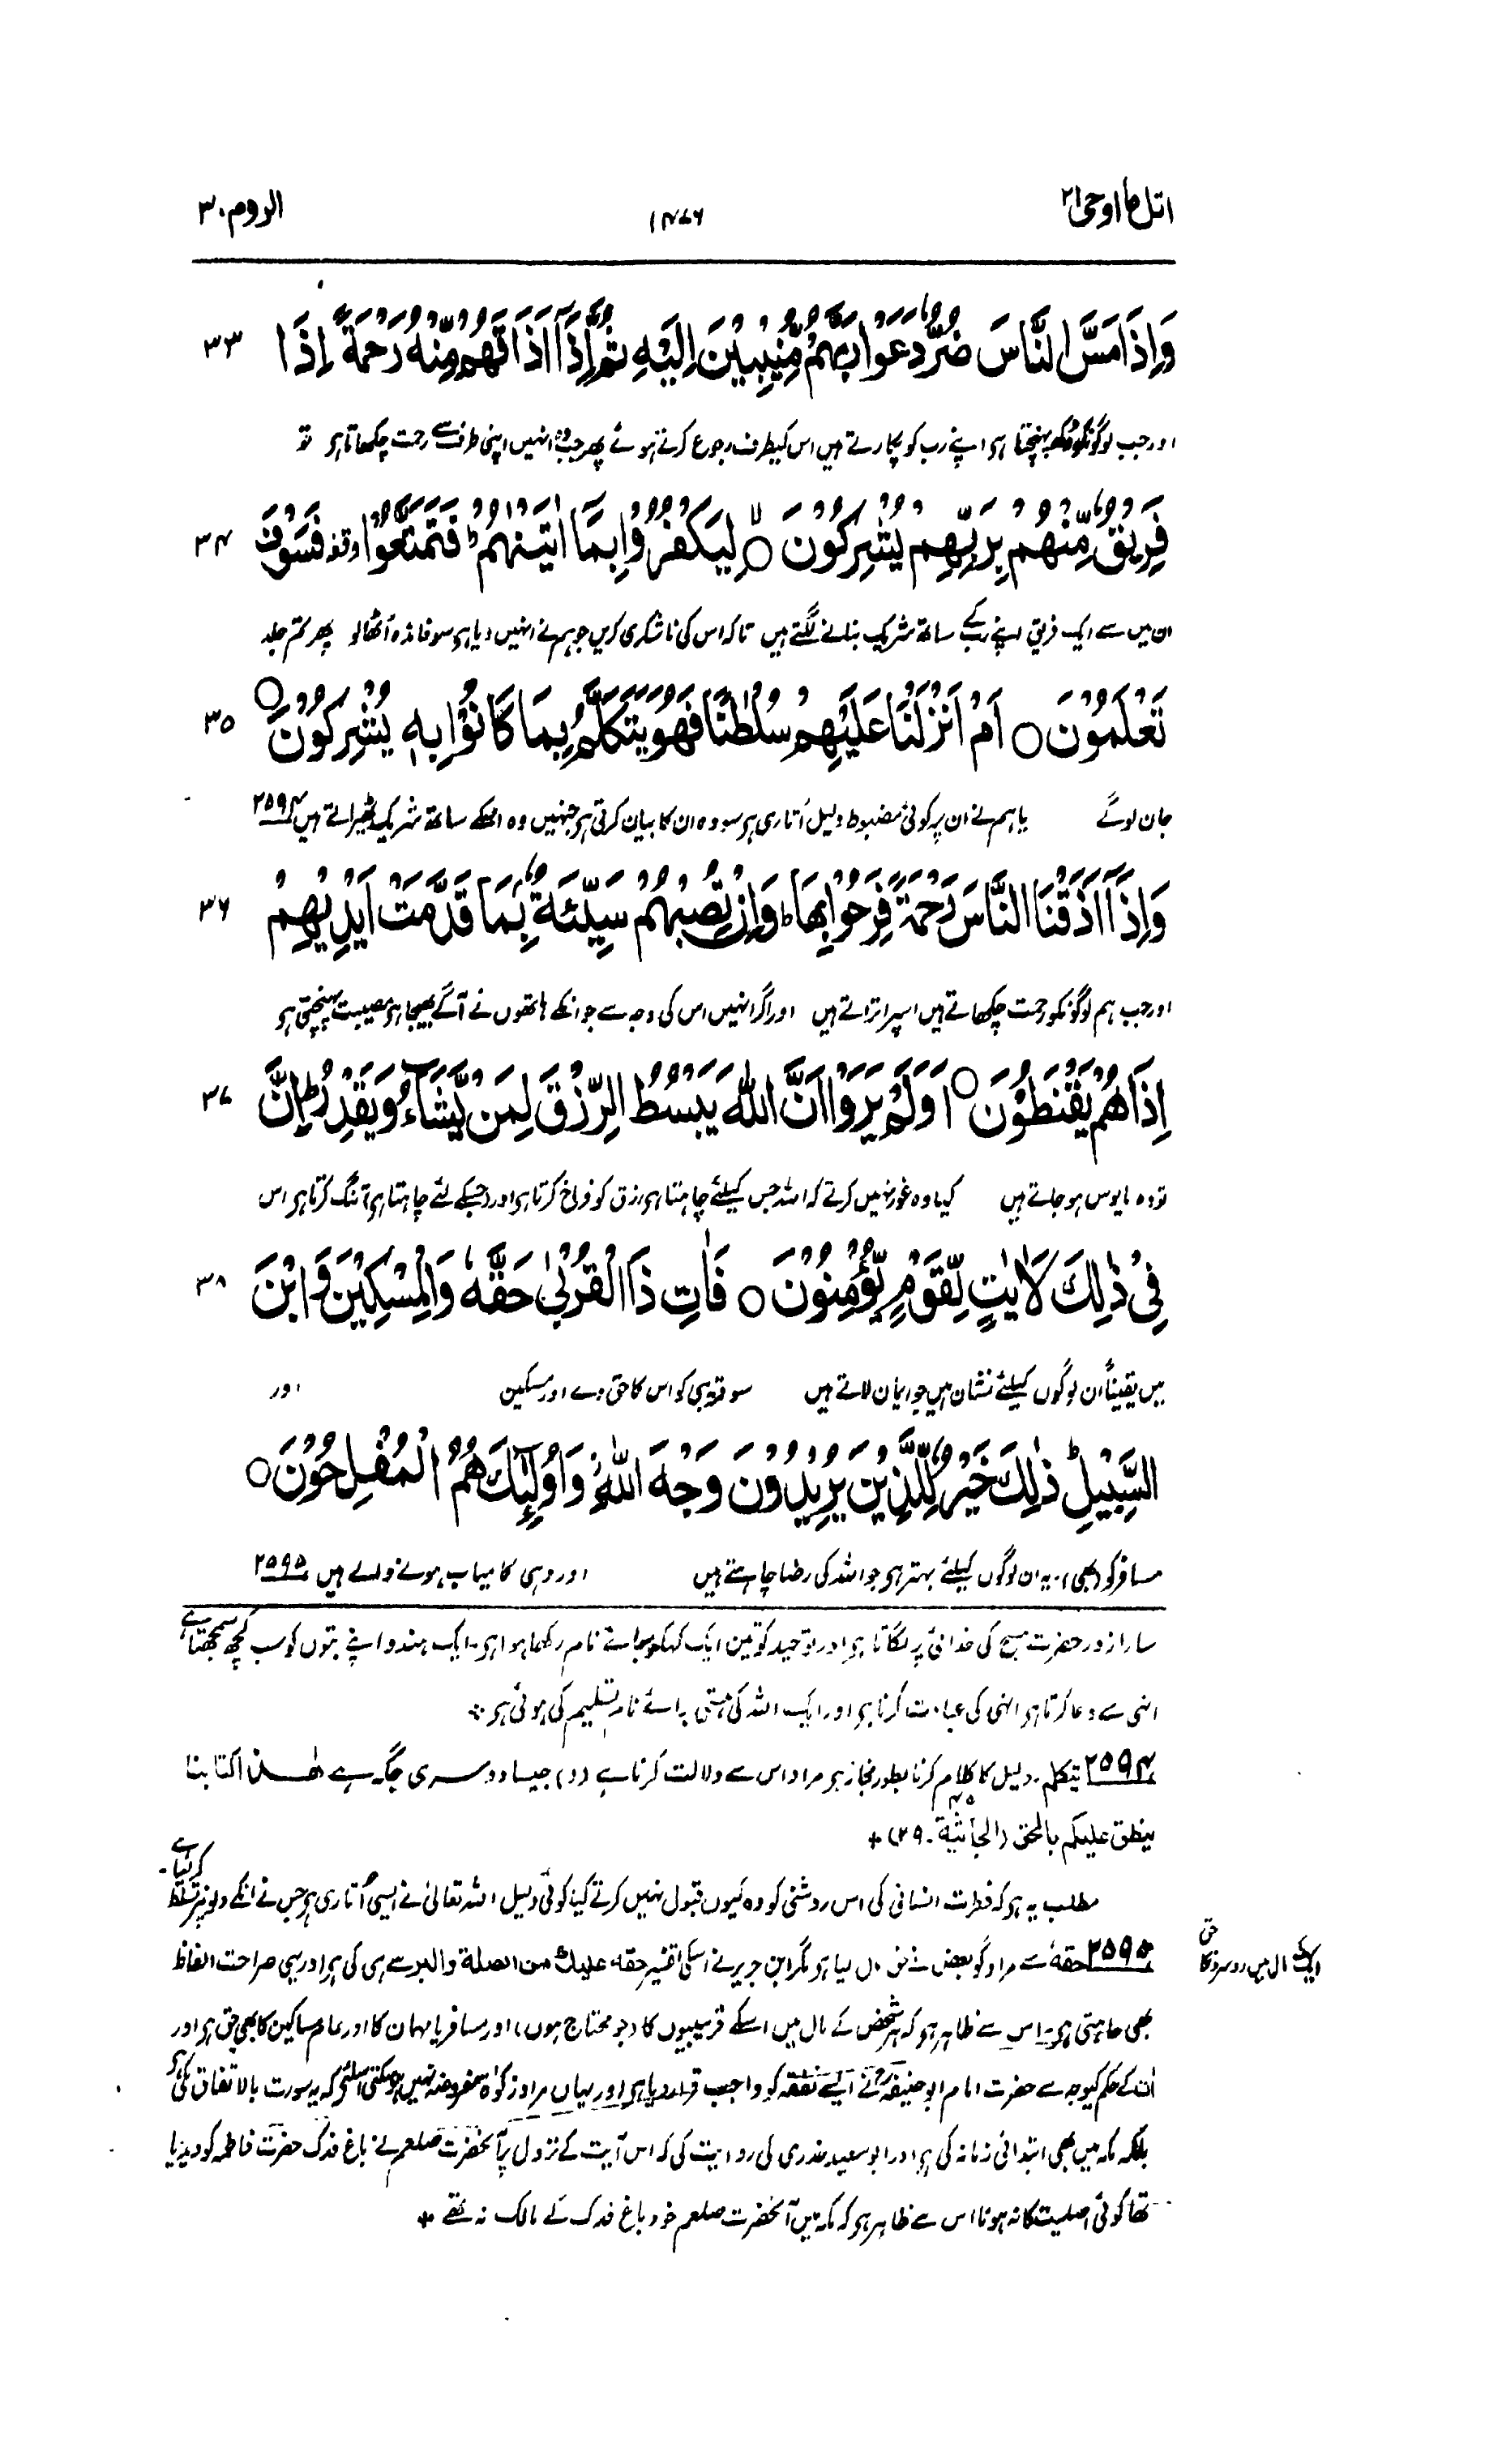 اتل ما اوحی ۲۱
۱۴۷۶
الروم ۳۰
وَاِذَا مَسَّ النَّاسَ ضُرٌّ دَعَوْا رَبَّهُمْ مُّنِيْبِيْنَ اِلَيْهِ ثُمَّ اِذَآ اَذَاقَهُمْ مِّنْهُ رَحْمَةً اِذَا ۳۳
اور جب لوگونکو دکھ پہنچتا ہو اپنے رب کو پکارتے ہیں اس کیطرف رجوع کرتے ہوئے پھر جب وہ انہیں اپنی طرف سے رحمت چکھاتا ہو تو
فَرِيْقٌ مِّنْهُمْ بِرَبِّهِمْ يُشْرِكُوْنَ ۙ لِيَكْفُرُوْا بِمَآ اٰتَيْنٰهُمْ ؕ فَتَمَتَّعُوْا وقفہ فَسَوْفَ ۳۴
ان میں سے ایک فریق اپنے رب کے ساتھ شریک بنانے لگتے ہیں تاکہ اس کی ناشکری کریں جو ہم نے انہیں دیا ہو سو فائدہ اُٹھالو پھر تم جلد
تَعْلَمُوْنَ ○ اَمْ اَنْزَلْنَا عَلَيْهِمْ سُلْطٰنًا فَهُوَ يَتَكَلَّمُ بِمَا كَانُوْا بِهٖ يُشْرِكُوْنَ ○ ۳۵
جان لوگے یا ہم نے ان پر کوئی مضبوط دلیل اُتاری ہو سو وہ ان کا بیان کرتی ہو جنہیں وہ اسکے ساتھ شریک ٹھیراتے ہیں ۲۵۹۴
وَاِذَآ اَذَقْنَا النَّاسَ رَحْمَةً فَرِحُوْا بِهَا ؕ وَاِنْ تُصِبْهُمْ سَيِّئَةٌۢ بِمَا قَدَّمَتْ اَيْدِيْهِمْ ۳۶
اور جب ہم لوگونکو رحمت چکھاتے ہیں اسپر اتراتے ہیں اور اگر انہیں اس کی وجہ سے جو انکے ہاتھوں نے آگے بھیجا ہو مصیبت پہنچتی ہو
اِذَا هُمْ يَقْنَطُوْنَ ○ اَوَلَمْ يَرَوْا اَنَّ اللّٰهَ يَبْسُطُ الرِّزْقَ لِمَنْ يَّشَآءُ وَيَقْدِرُ ؕ اِنَّ ۳۷
تو وہ مایوس ہو جاتے ہیں کیا وہ غور نہیں کرتے کہ اللہ جس کیلئے چاہتا ہو رزق کو فراخ کرتا ہو اور (جسکے لئے چاہتا ہو) تنگ کرتا ہو اس
فِيْ ذٰلِكَ لَاٰيٰتٍ لِّقَوْمٍ يُّؤْمِنُوْنَ ○ فَاٰتِ ذَا الْقُرْبٰى حَقَّهٗ وَالْمِسْكِيْنَ وَابْنَ ۳۸
میں یقیناً ان لوگوں کیلئے نشان ہیں جو ایمان لاتے ہیں سو قریبی کو اس کا حق دے اور مسکین اور
السَّبِيْلِ ؕ ذٰلِكَ خَيْرٌ لِّلَّذِيْنَ يُرِيْدُوْنَ وَجْهَ اللّٰهِ ۡ وَاُولٰٓئِكَ هُمُ الْمُفْلِحُوْنَ ○
مسافر کو (بھی)۔ یہ ان لوگوں کیلئے بہتر ہو جو اللہ کی رضا چاہتے ہیں اور وہی کامیاب ہونے والے ہیں ۲۵۹۵
سارا زور حضرت مسیح کی خدائی پر لگاتا ہو اور توحید کو تین ایک کہکر برائے نام رکھا ہوا ہو۔ ایک ہندو اپنے بتوں کو سب کچھ سمجھتا ہے
انہی سے دعا کرتا ہو انہی کی عبادت کرتا ہو اور ایک اللہ کی ہستی برائے نام تسلیم کی ہوئی ہو ؞
۲۵۹۴ یتکلم۔ دلیل کا کلام کرنا بطور مجاز ہو مراد اس سے دلالت کرنا ہے (د) جیسا دوسری جگہ ہے ھٰذا کتابنا
ینطق علیکم بالحق (الجاثیة ۴۵۔ ۲۹) +
مطلب یہ ہو کہ فطرت انسانی کی اس روشنی کو وہ کیوں قبول نہیں کرتے کیا کوئی دلیل اللہ تعالیٰ نے ایسی اُتاری ہو جس نے انکے دلونپر تسلط کر لیا ہے۔
۲۵۹۵ حقہٗ سے مراد گو بعض نے حق مال لیا ہو مگر ابن جریر نے اسکی تفسیر حقہ علیك من الصلة والبر سے ہی کی ہو اور یہی صراحت الفاظ
ایک کے مال میں دوسرونکا حق
بھی چاہتی ہو۔ اس سے ظاہر ہو کہ ہر شخص کے مال میں اسکے قریبیوں کا (جو محتاج ہوں) اور مسافر یا مہمان کا اور عام مساکین کا بھی حق ہو اور
اُن کے حکم کیوجہ سے حضرت امام ابوحنیفہؒ نے ایسے نفقہ کو واجب قرار دیا ہو اور یہاں مراد زکوٰۃ مفروضہ نہیں ہو سکتی اسلئے کہ یہ سورت بالاتفاق مکی ہو
بلکہ مکہ میں بھی ابتدائی زمانہ کی ہو اور ابوسعید خدری کی روایت کی کہ اس آیت کے نزول پر آنحضرت صلعم نے باغ فدک حضرت فاطمہ کو دیدیا
تھا کوئی اصلیت کا نہ ہونا اس سے ظاہر ہو کہ مکہ میں آنحضرت صلعم خود باغ فدک کے مالک نہ تھے +